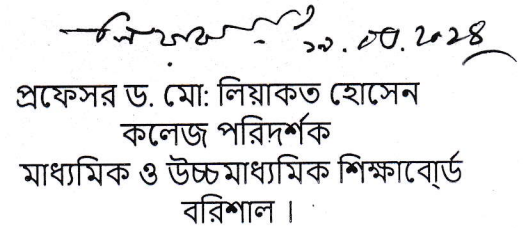 প্রফেসর ড. মো: লিয়াকত হোসেন
কলেজ পরিদর্শক
মাধ্যমিক ও উচ্চমাধ্যমিক শিক্ষাবোর্ড
বরিশাল ।